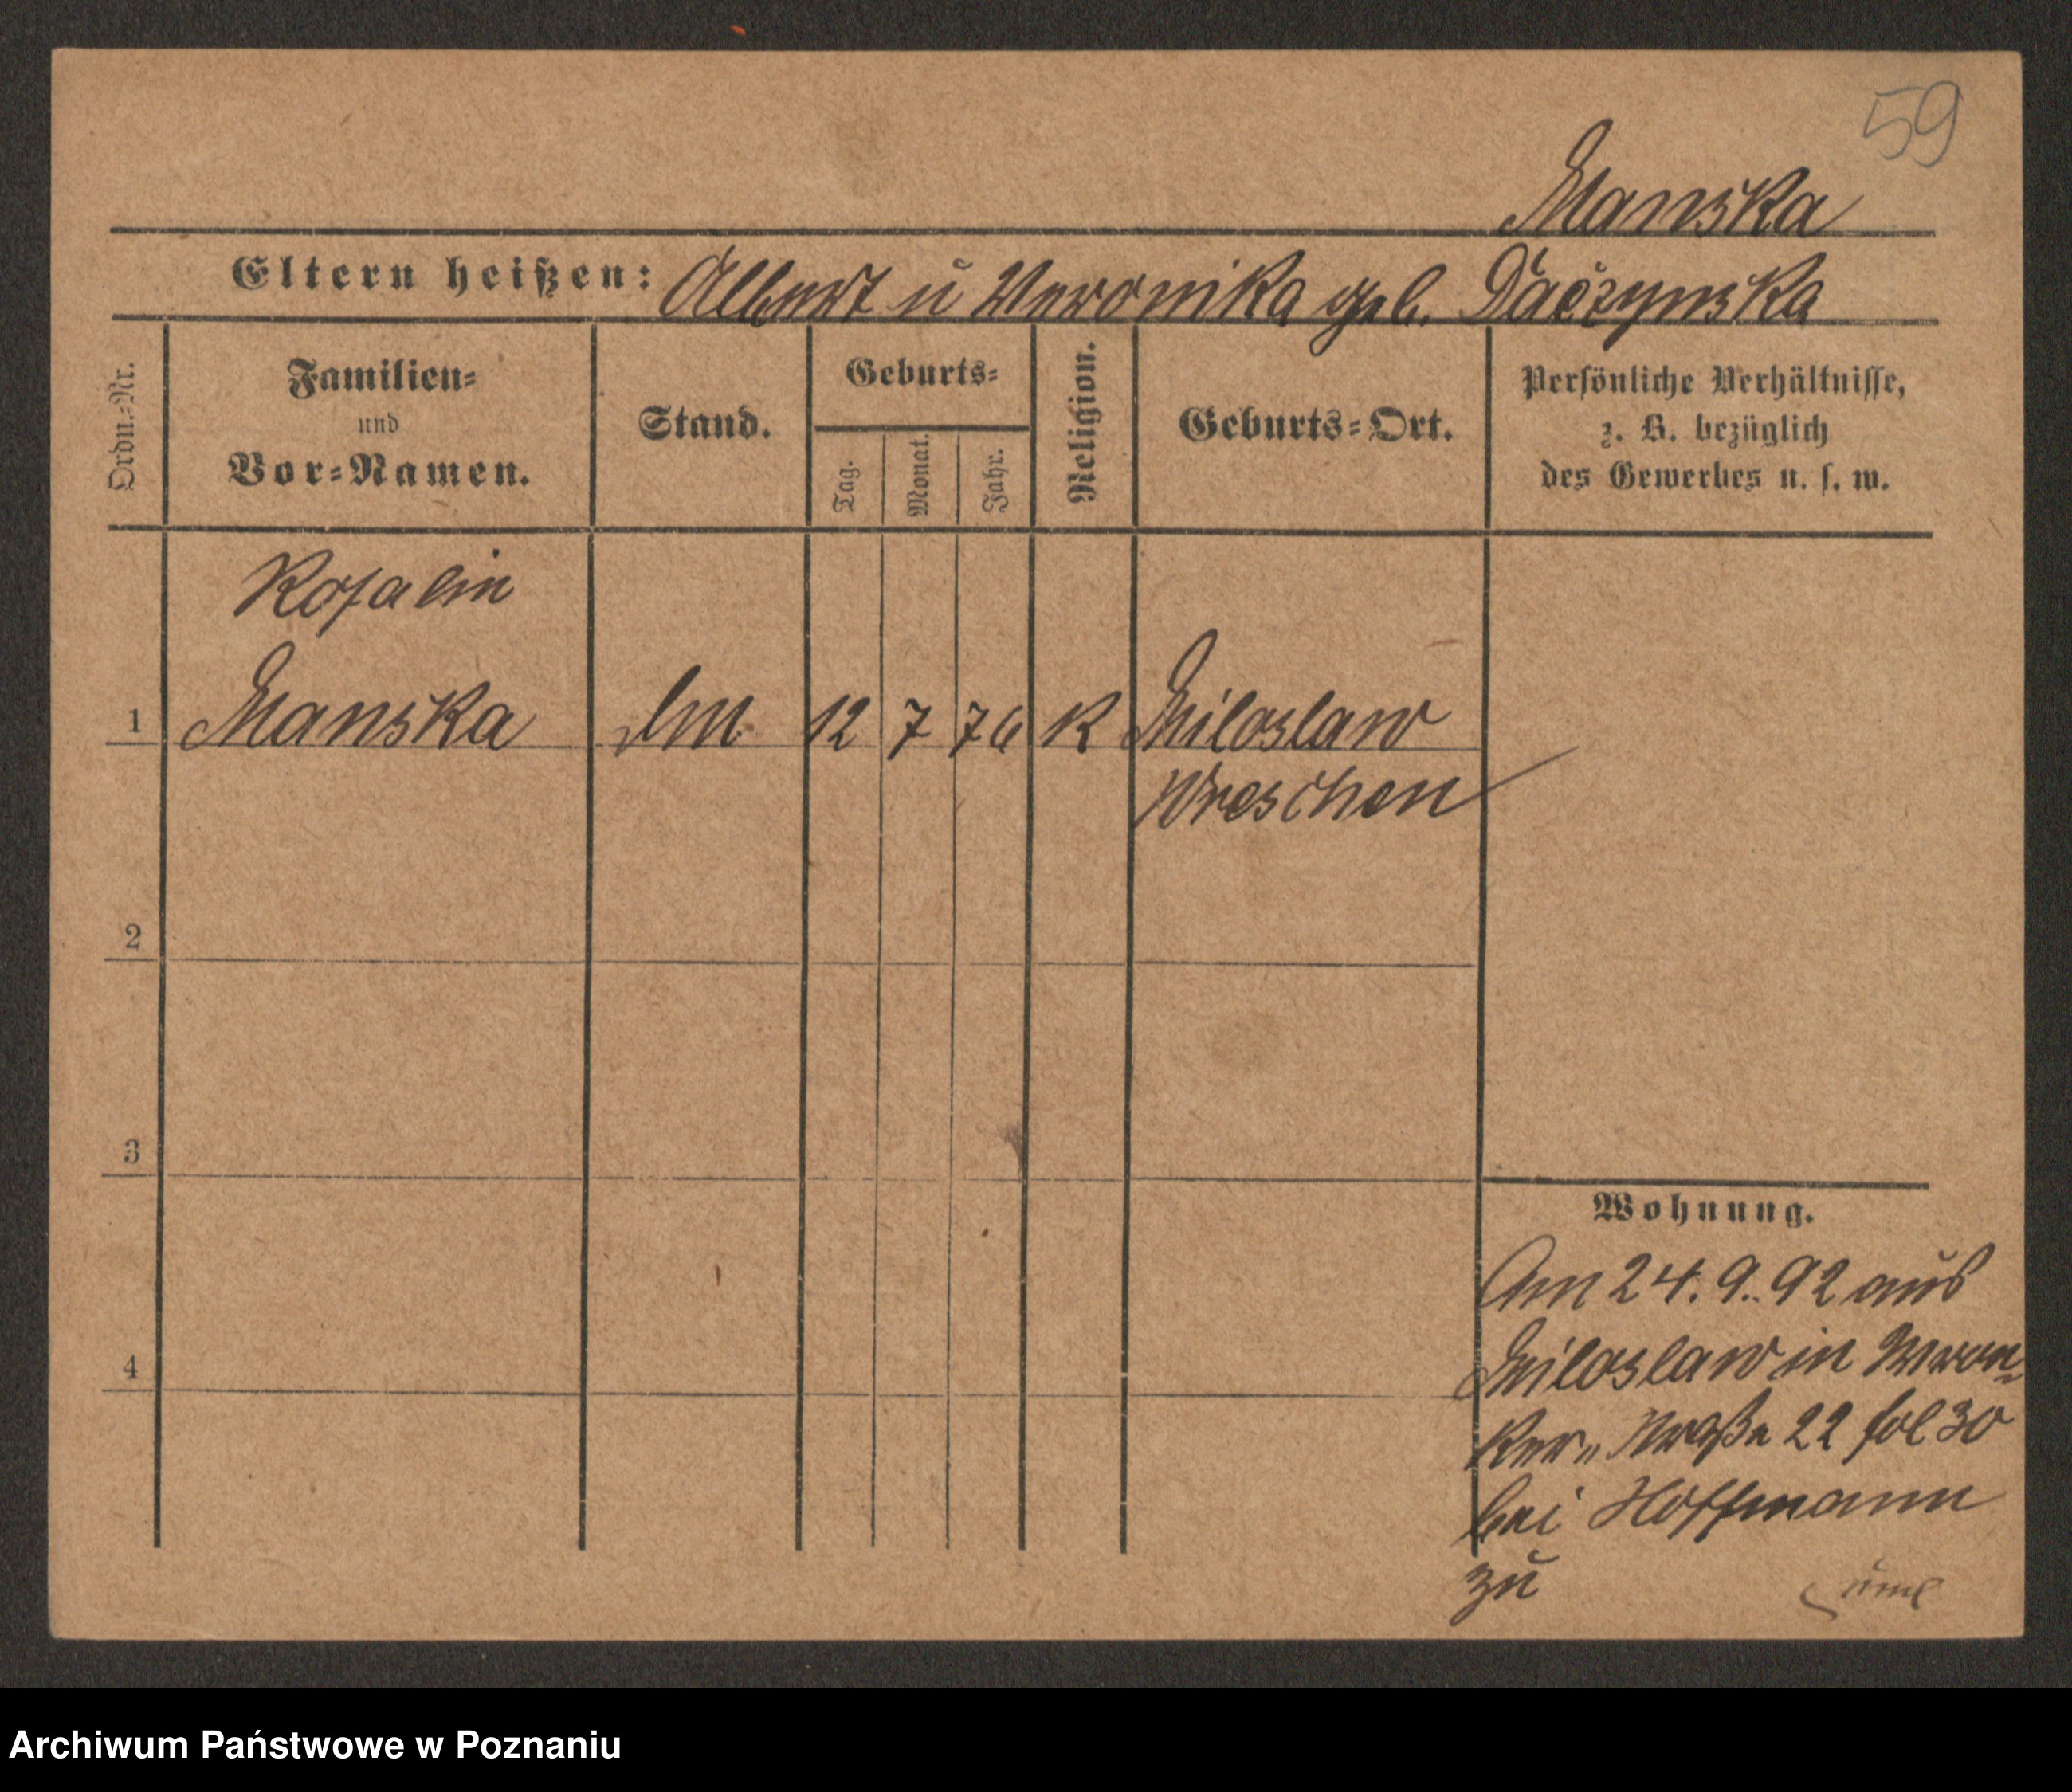 59
Manska
Eltern heißen: Albert u Veronika geb. Daczynska
Ordn.-Nr.
Familien-
und
Vor-Namen.
Stand.
Geburts-
Tag.
Monat.
Jahr.
Religion.
Geburts-Ort.
Persönliche Verhältnisse,
z. B. bezüglich
des Gewerbes u. s. w.
Rosalie
1 Manska 12 7 76 K Miloslaw
Wreschen
2
3
4
Wohnung.
Am 24. 9. 92 aus
Miloslaw in Wron-
ker Straße 22 fol 30
bei Hoffmann
zu
Archiwum Państwowe w Poznaniu